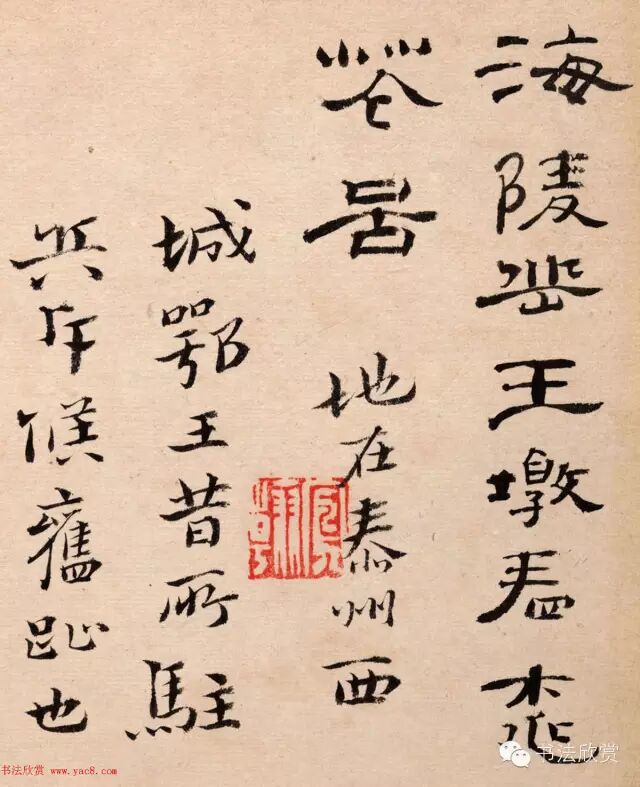 海陵岳王墩看桃
花啚 地在泰州西
城鄂王昔所駐
兵斥候舊趾也
书法欣赏
书法欣赏 www.yac8.com